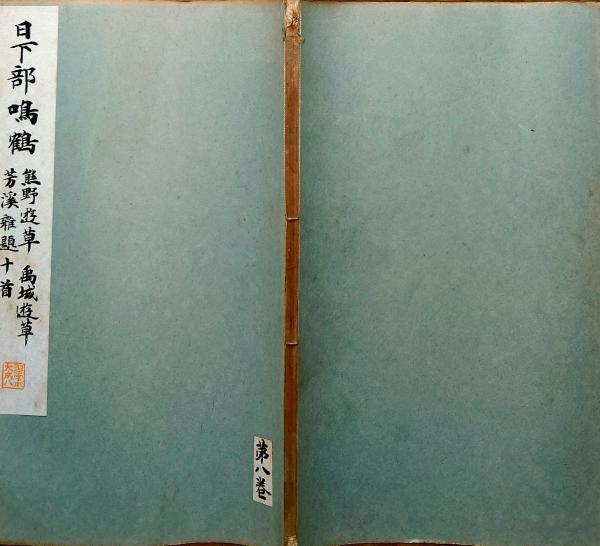 日下部鳴鶴
熊野遊草 禹城遊草
芳溪雜題十首
第八巻